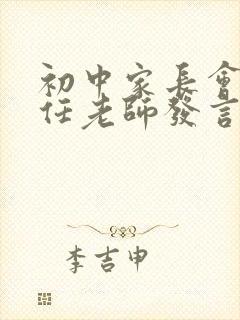 初中家長會
任老師發言
李吉申